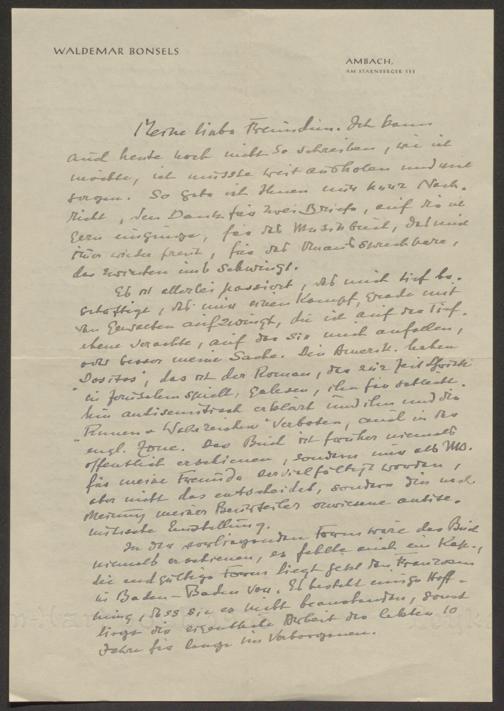 WALDEMAR BONSELS
AMBACH,
AM STARNBERGER SEE
Meine liebe Freundin. Ich kann
auch heute noch nicht so schreiben, wie ich
möchte, ich müsste weit ausholen und
sorgen. So gebe ich Ihnen nur kurz Nach-
richt, den Dank für zwei Briefe, auf die ich
gern einginge, für das Musikbuch, das mich
immer wieder freut, für das Unaussprechbare,
das zwischen uns schwingt.
Es ist allerlei passiert, das mich tief be-
schäftigt, das mir einen Kampf, gerade mit
den Gewalten aufzwingt, die ich auf das Tief-
ste verachte, auf das Sie mich anfallen,
oder besser meine Sache. Die Amerik. haben
"Dositos", das ist der Roman, der zur Zeit Christi
in Jerusalem spielt, gelesen, ihn für
hin antisemitisch erklärt und ihn und die
"Runen u Wahrzeichen" verboten, auch in der
engl. Zone. Das Buch ist früher niemals
öffentlich erschienen, sondern nur als MS.
für meine Freunde vervielfältigt worden,
aber nicht das entscheidet, sondern die nach
Meinung meiner Beurteiler erwiesene antise-
mitische Einstellung.
In der vorliegenden Form wäre das Buch
niemals erschienen, es fehlte auch ein Kap.,
die endgültige Form liegt jetzt den Franzosen
in Baden-Baden vor. Es besteht einige Hoff-
nung, dass sie es nicht beanstanden, sonst
liegt die eigentliche Arbeit der letzten 10
Jahre für lange im Verborgenen.